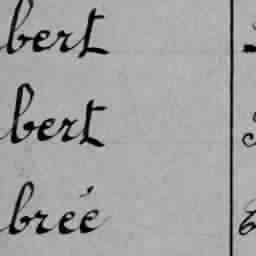 bert
bert
brée